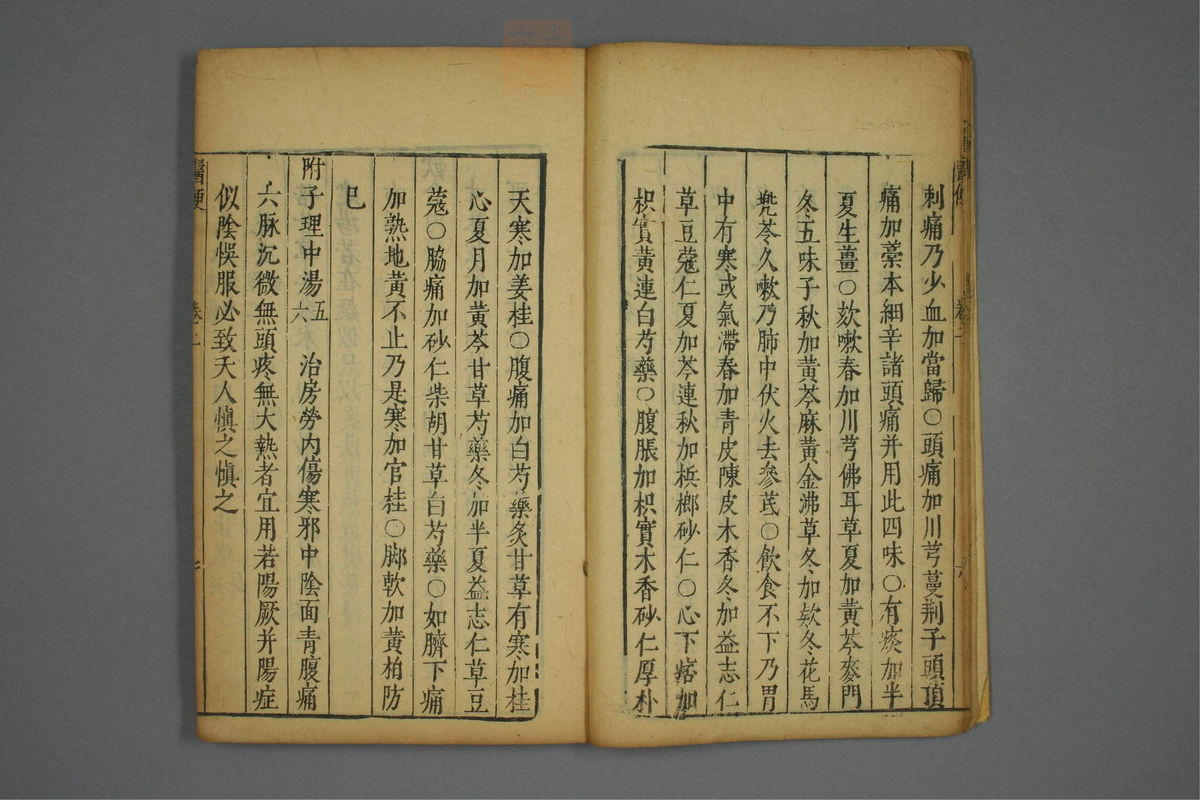 刺痛乃少血加當歸○頭痛加川芎蔓荆子頭頂
痛加藁本細辛諸頭痛并用此四味○有痰加半
夏生薑○欬嗽春加川芎佛耳草夏加黃芩麥門
冬五味子秋加黃芩麻黃金沸草冬加欵冬花馬
兠苓久嗽乃肺中伏火去參芪○飲食不下乃胃
中有寒或氣滯春加青皮陳皮木香冬加益志仁
草豆蔻仁夏加芩連秋加梹榔砂仁○心下痞加
枳實黃連白芍藥○腹脹加枳實木香砂仁厚朴
天寒加姜桂○腹痛加白芍藥炙甘草有寒加桂
心夏月加黃芩甘草芍藥冬加半夏益志仁草豆
蔻○脇痛加砂仁柴胡甘草白芍藥○如臍下痛
加熟地黃不止乃是寒加官桂○脚軟加黃柏防
已
附子理中湯五六　治房勞內傷寒邪中陰面青腹痛
六脉沉微無頭疼無大熱者宜用若陽厥并陽症
似陰悞服必致夭人愼之愼之
醫便
卷二